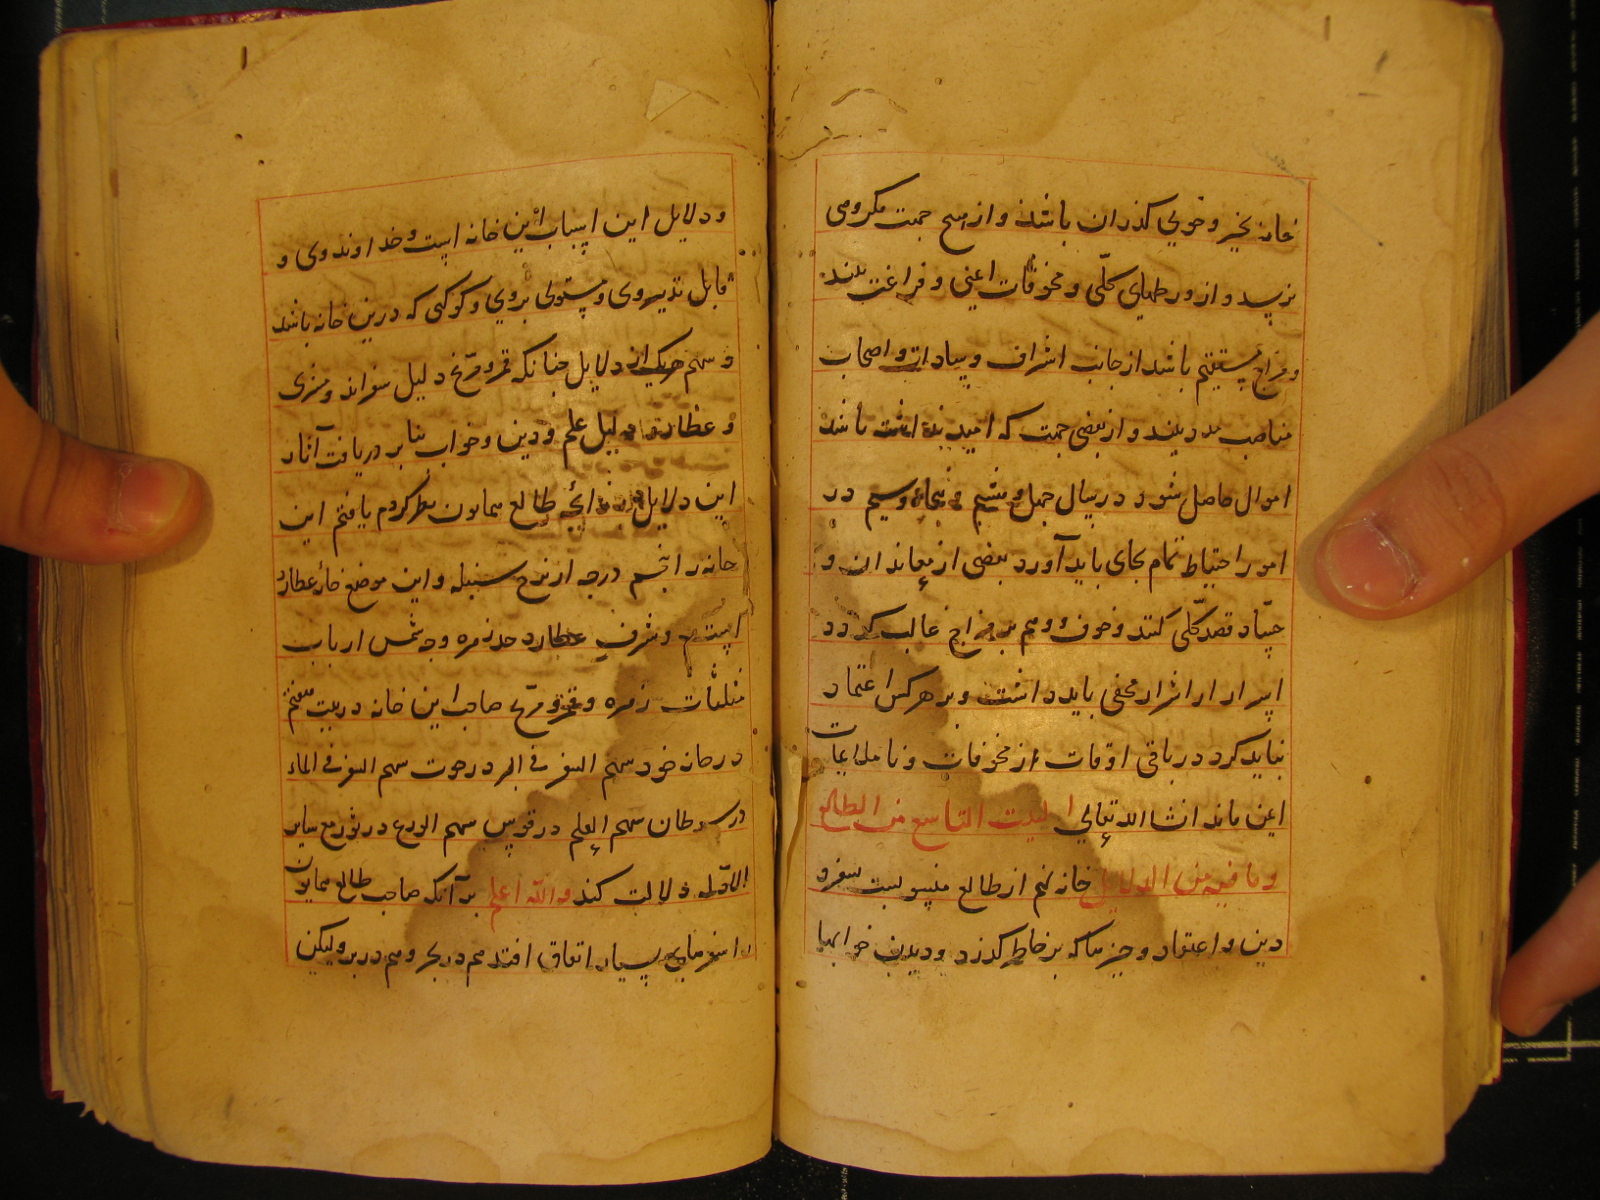 خانه بخیر و خوبی گذران باشد و از هیچ جهت مکروهی
نرسد و از ورطهای کلّی و مخوفات ایمنی و فراغت بیند
و مزاج مستقیم باشد از جانب اشراف و سادات و اصحاب
مناصب مدد بیند و از بعضی جهت که امید نداشته باشد
اموال حاصل شود در سال چهل و ششم و پنجاه و سیم در
امور احتیاط تمام بجای باید آورد بعضی از معاندان و
حسّاد قصد کلّی کنند و خوف و وهم بر مزاج غالب کردد
اسرار از اشرار مخفی باید داشت و بر هرکس اعتماد
نباید کرد در باقی اوقات از مخوفات و ناملایمات
ایمن ماند انشا الله تعالی البیت التاسع من الطالع
و ما فیه من الدلایل خانه نهم از طالع منسوبست بسفر و
دین و اعتقاد و چیزها که بر خاطر کذرد و دیدن خوابها
و دلایل این اسباب این خانه است و خداوند وی و
قابل تدبیر وی و مستولی بر وی و کوکبی که درین خانه باشد
و سهم هریک از دلایل چنانکه قمر و مریخ دلیل سفراند و مشتری
و عطارد دلیل علم و دین و خواب بنابر دریافت آثار
این دلایل در زایجه طالع همایون نظر کردم یافتم این
خانه را بیستم درجه از برج سنبله و این موضع خانه عطارد
است و شرف عطارد حد زهره وجه شمس ارباب
مثلثات زهره و قمر و مریخ صاحب این خانه در بیت هفتم
در خانه خود سهم السفر فی البر در حوت سهم السفر فی الماء
در سرطان سهم العلم در قوس سهم الورع در ثور مع سایر
الادله دلالت کند والله اعلم بر آنکه صاحب طالع همایون
را سفرهای بسیار اتفاق افتد هم در بحر و هم در بر ولیکن